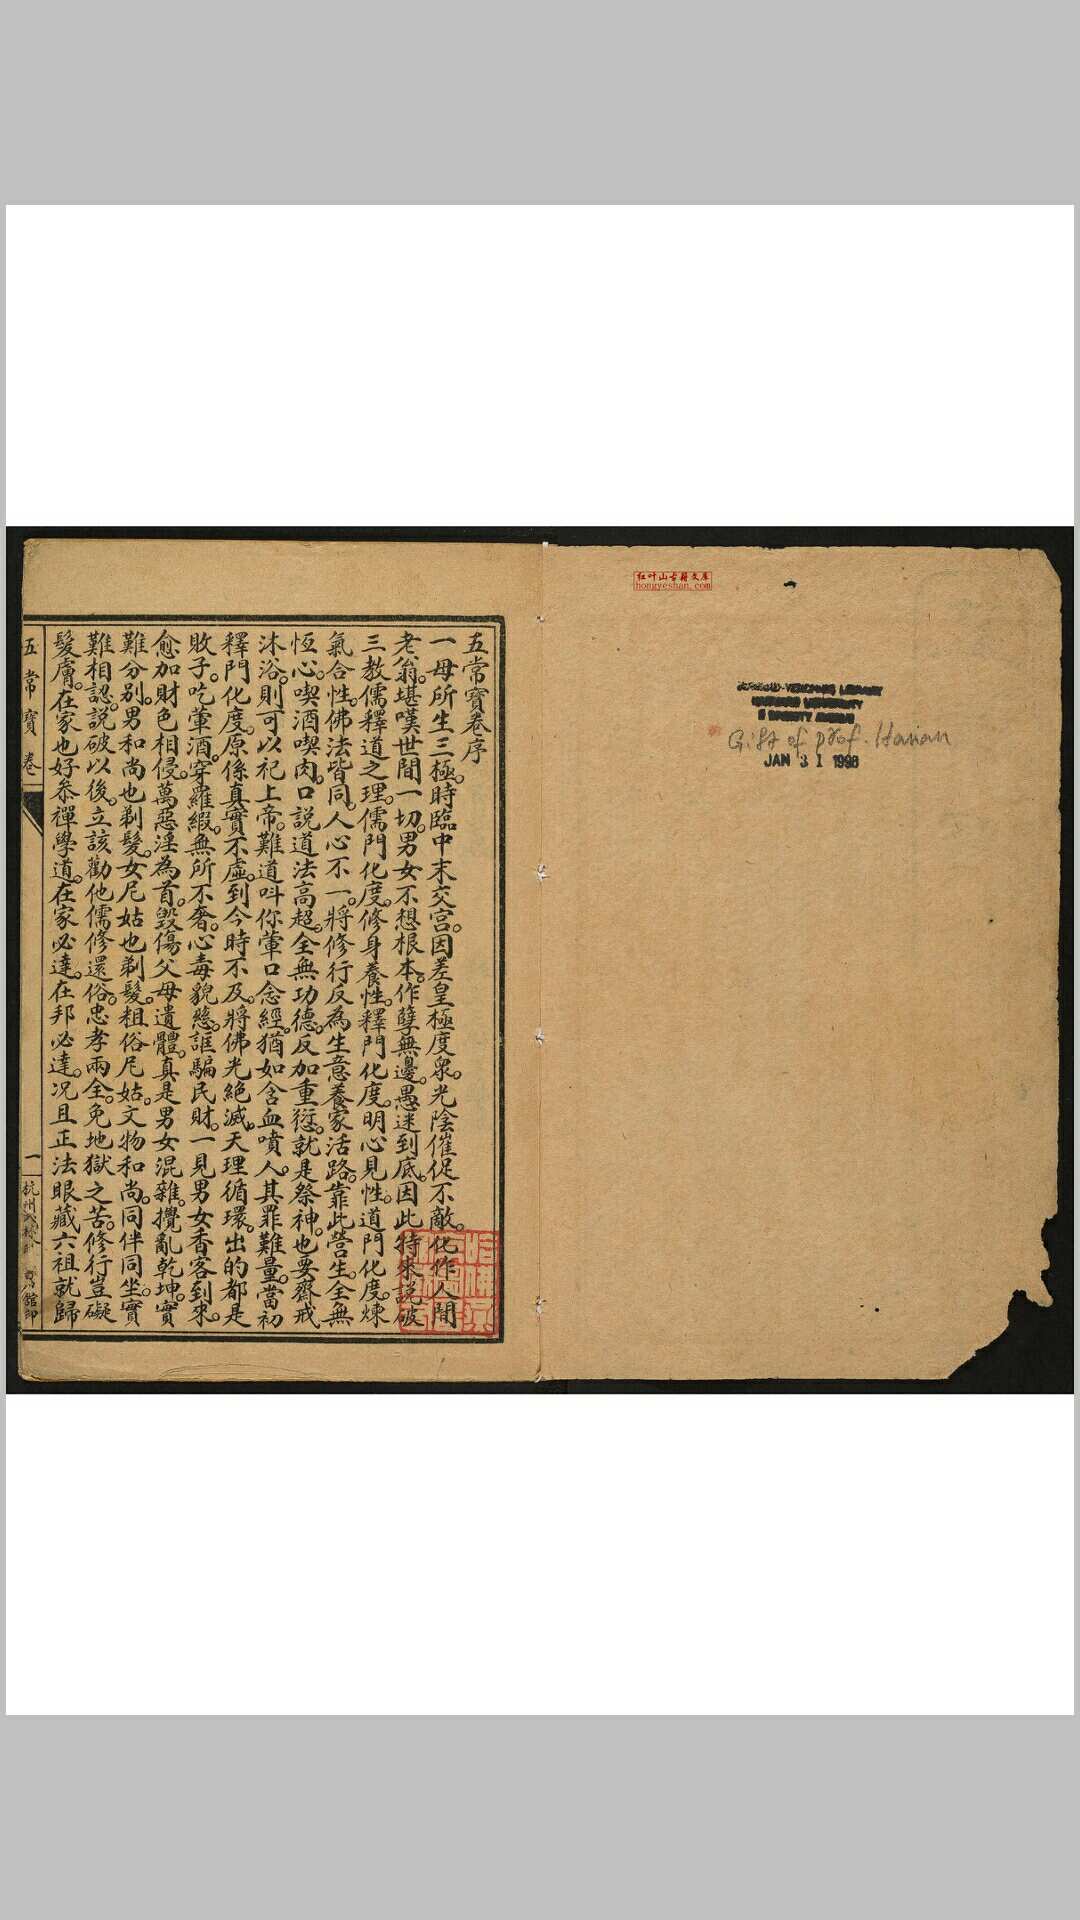 红叶山古籍文库
hongyeshan.com
HARVARD-YENCHING LIBRARY
HARVARD UNIVERSITY
2 DIVINITY AVENUE
Gift of prof. Hanan
JAN 31 1996
五常寶卷序
一母所生三極。時臨中末交宮。因差皇極度衆。光陰催促不敵。化作人間
老翁。堪嘆世間一切。男女不想根本。作孽無邊。愚迷到底。因此特來說破
三教儒釋道之理。儒門化度。修身養性。釋門化度。明心見性。道門化度。煉
氣合性。佛法皆同。人心不一。將修行反為生意。養家活路。靠此營生。全無
恆心。喫酒喫肉。口說道法高超。全無功德。反加重愆。就是祭神。也要齋戒
沐浴。則可以祀上帝。難道呌你葷口念經。猶如含血噴人。其罪難量。當初
釋門化度。原係真實不虛。到今時不及。將佛光絕滅。天理循環。出的都是
敗子。吃葷酒。穿羅緞。無所不奢。心毒貌慈。誆騙民財。一見男女香客到來。
愈加財色相侵。萬惡淫為首。毀傷父母遺體。真是男女混雜。攪亂乾坤。實
難分別。男和尚也剃髮。女尼姑也剃髮。粗俗尼姑。文物和尚。同伴同坐。實
難相認。說破以後。立該勸他儒修還俗。忠孝兩全。免地獄之苦。修行豈礙
髮膚。在家也好叅禪學道。在家必達。在邦必達。况且正法眼藏六祖就歸
五常寶卷
一
杭州
館印